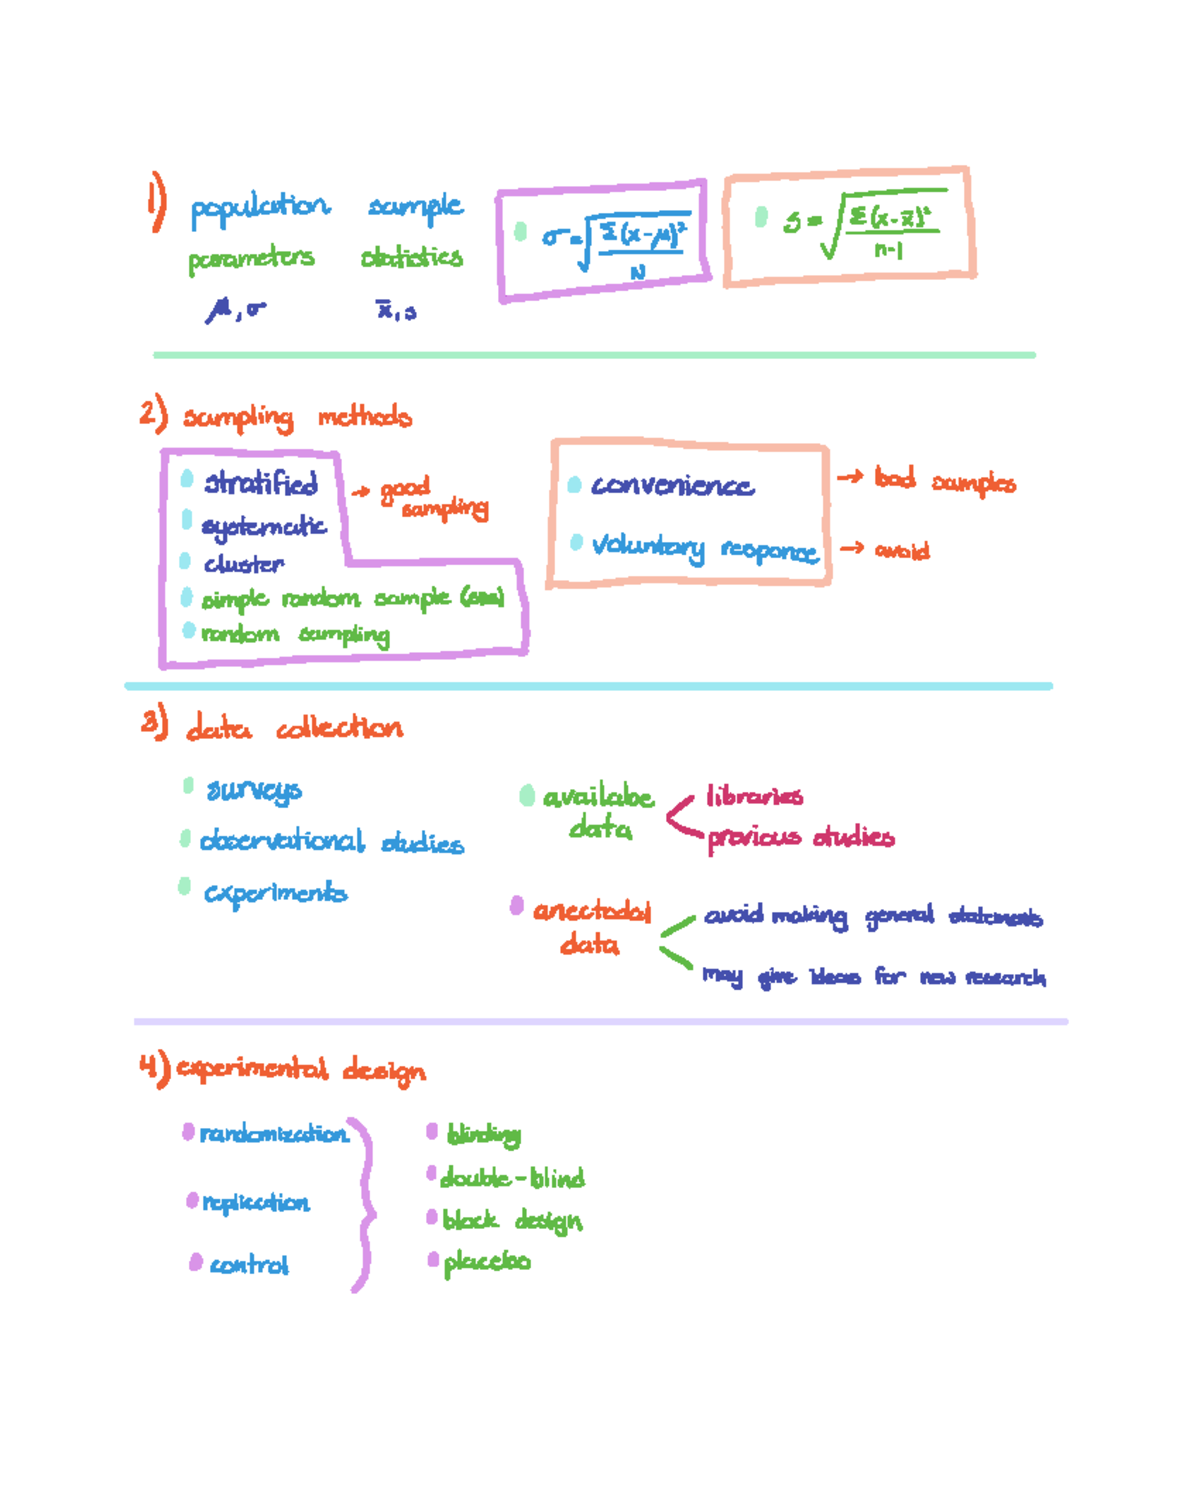 1) population sample
parameters statistics
μ, σ x̄, s
σ = √(Σ(x-μ)² / N)
s = √(Σ(x-x̄)² / n-1)
2) sampling methods
stratified
systematic
cluster
simple random sample (srs)
random sampling
→ good
sampling
convenience
voluntary response
→ bad samples
→ avoid
3) data collection
surveys
observational studies
experiments
availabe
data
libraries
previous studies
anectodal
data
avoid making general statements
may give ideas for new research
4) experimental design
randomization
replication
control
blinding
double-blind
block design
placebo